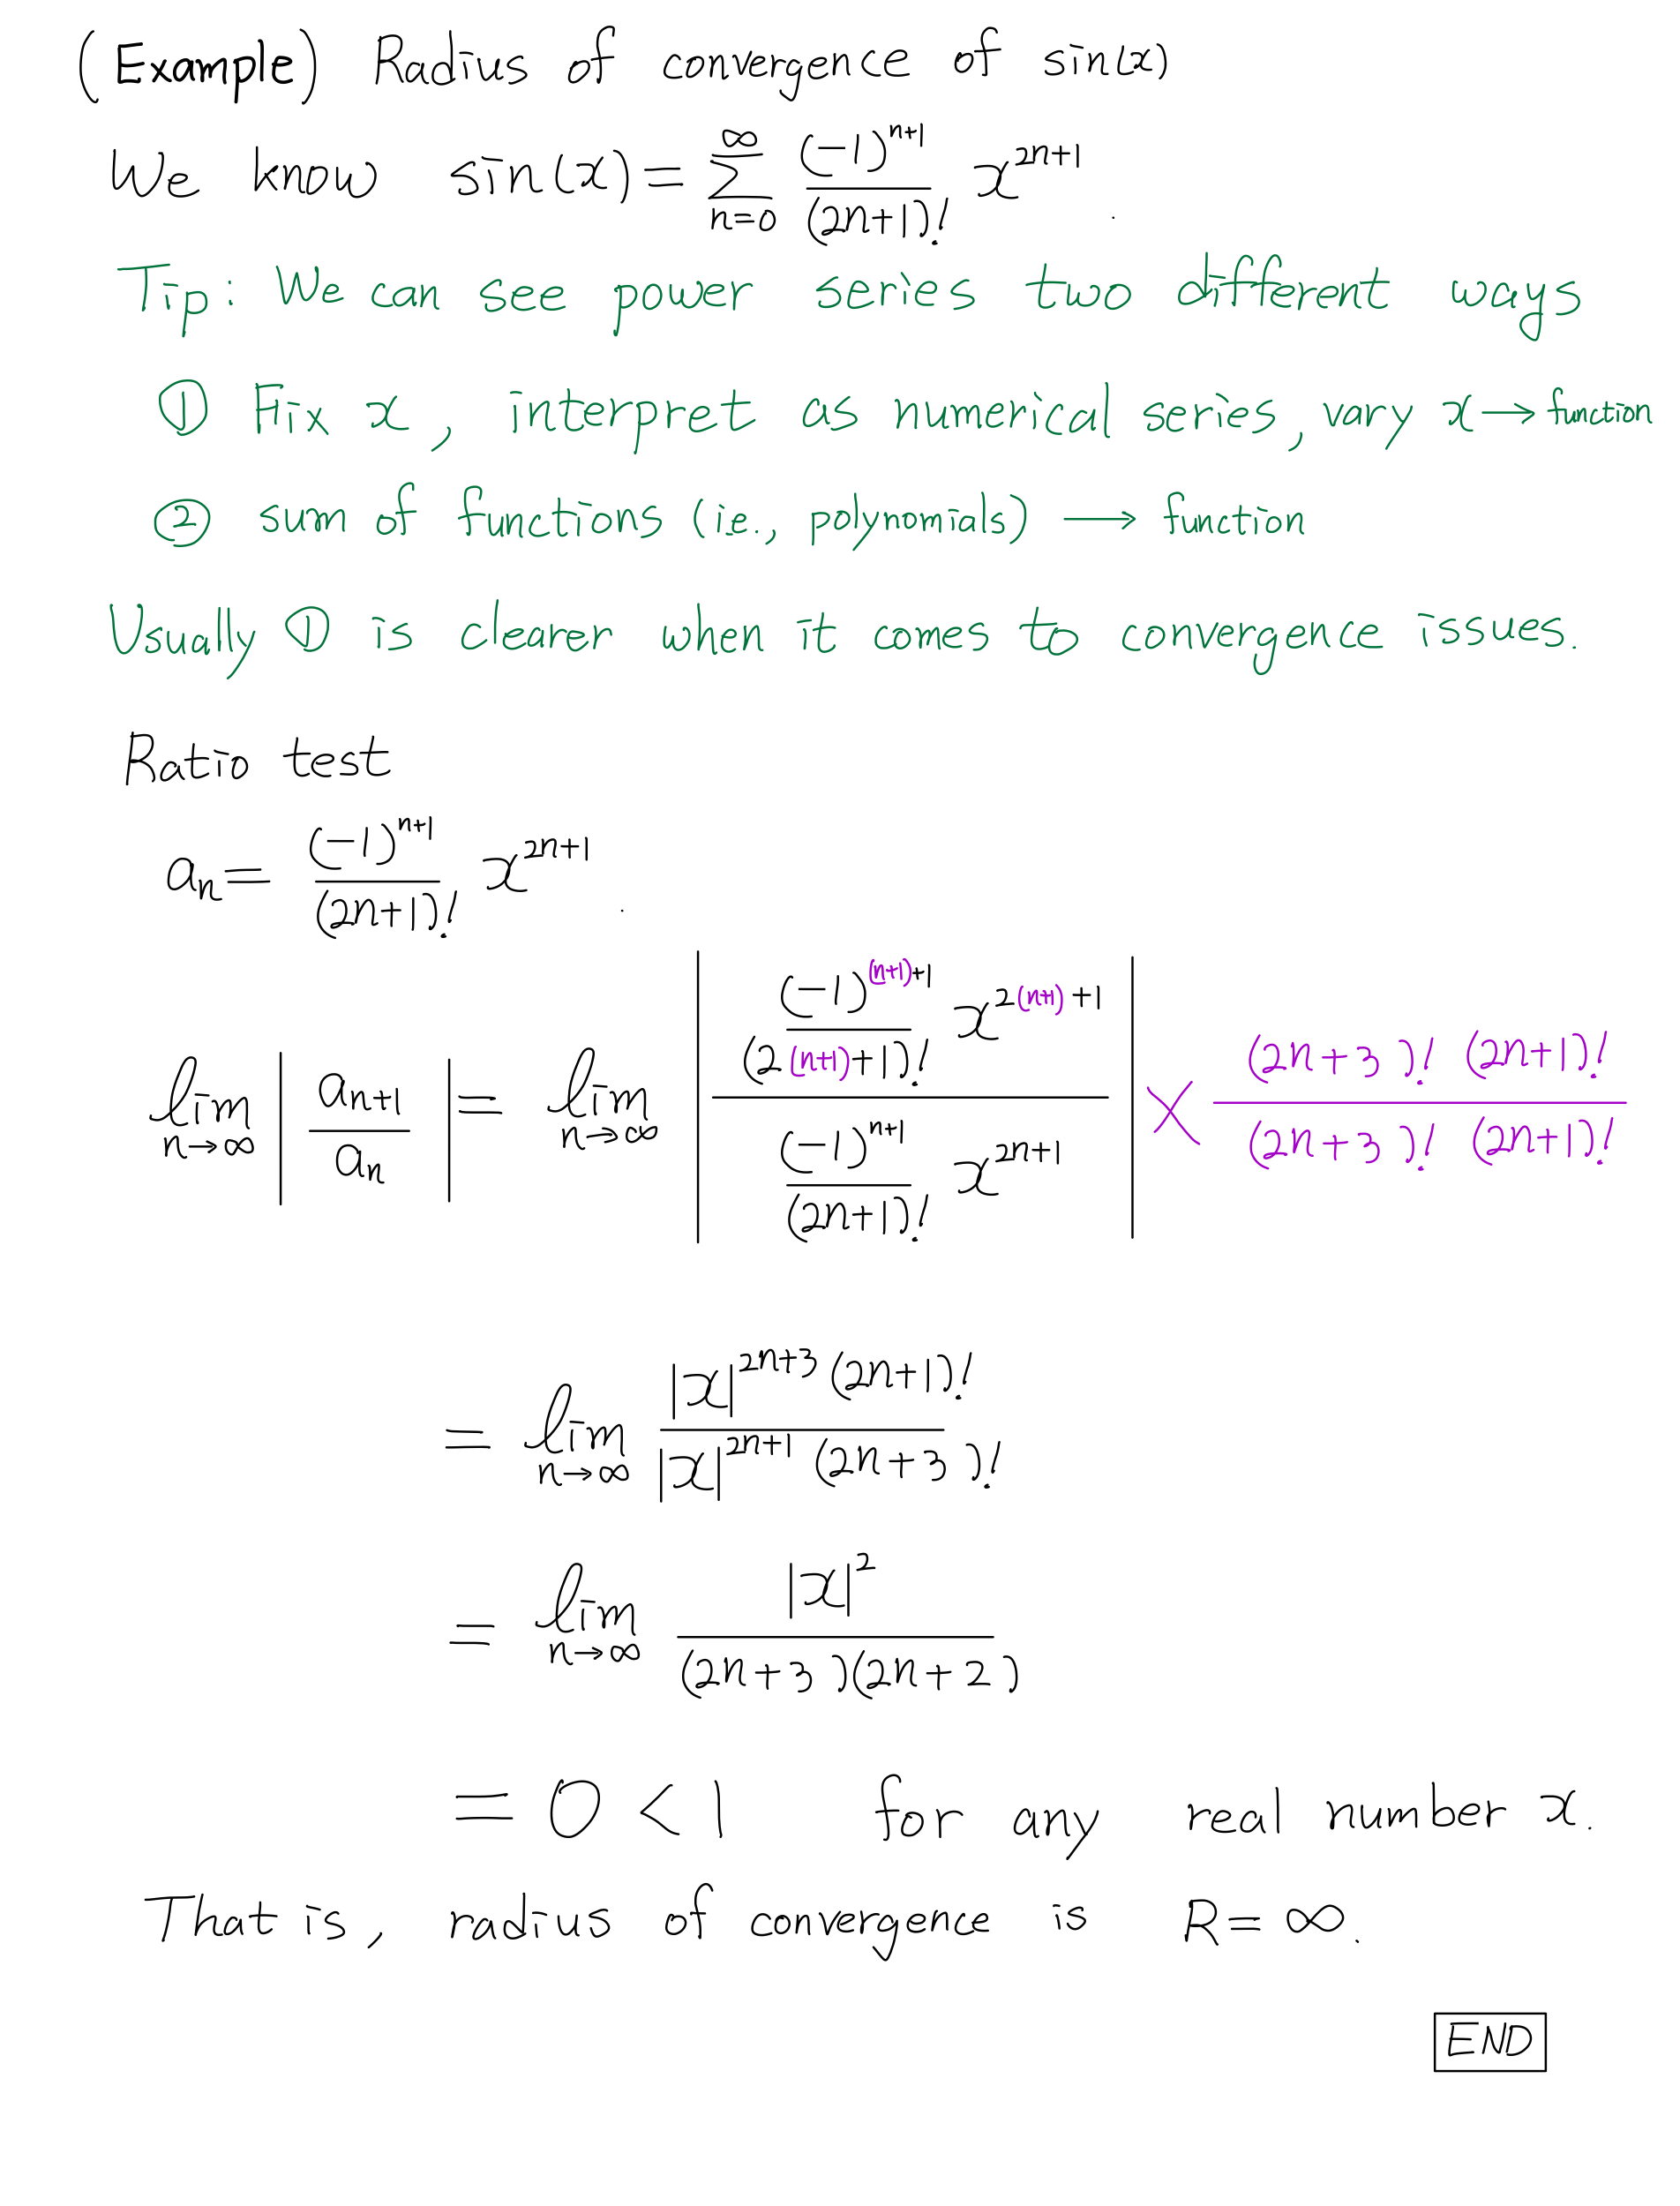 (Example) Radius of convergence of sin(x)
We know sin(x) = ∑_{n=0}^{∞} \frac{(-1)^{n+1}}{(2n+1)!} x^{2n+1} .
Tip: We can see power series two different ways
① Fix x, interpret as numerical series, vary x → function
② sum of functions (i.e., polynomials) ⟶ function
Usually ① is clearer when it comes to convergence issues.
Ratio test
a_n = \frac{(-1)^{n+1}}{(2n+1)!} x^{2n+1} .
\lim_{n→∞} \left| \frac{a_{n+1}}{a_n} \right| = \lim_{n→∞} \left| \frac{\frac{(-1)^{(n+1)+1}}{(2(n+1)+1)!} x^{2(n+1)+1}}{\frac{(-1)^{n+1}}{(2n+1)!} x^{2n+1}} \right| × \frac{(2n+3)! (2n+1)!}{(2n+3)! (2n+1)!}
= \lim_{n→∞} \frac{|x|^{2n+3} (2n+1)!}{|x|^{2n+1} (2n+3)!}
= \lim_{n→∞} \frac{|x|^2}{(2n+3)(2n+2)}
= 0 < 1 for any real number x.
That is, radius of convergence is R = ∞.
END